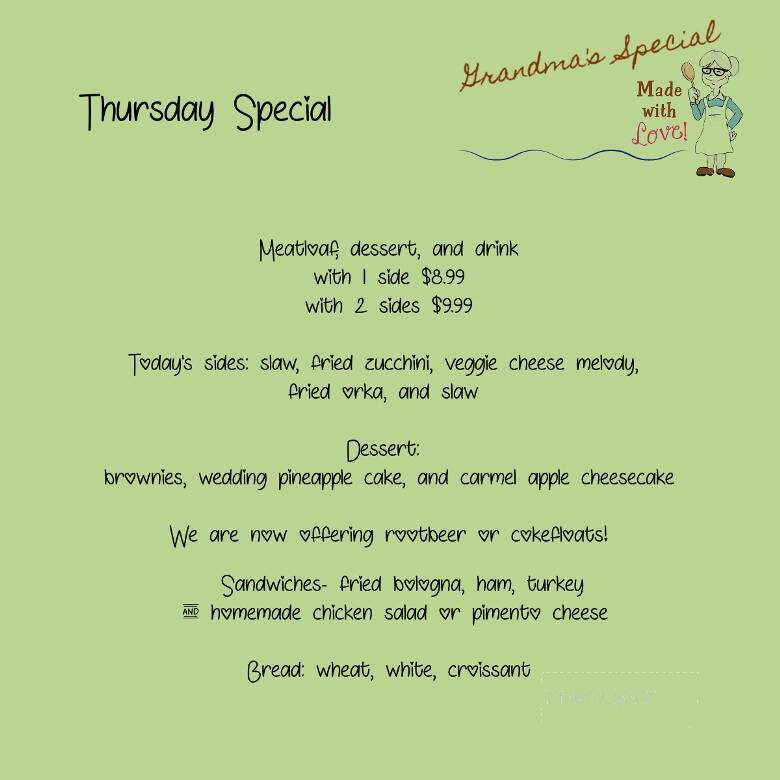 Grandma's Special
Thursday Special
Made
with
Love!
Meatloaf, dessert, and drink
with 1 side $8.99
with 2 sides $9.99
Today's sides: slaw, fried zucchini, veggie cheese melody,
fried orka, and slaw
Dessert:
brownies, wedding pineapple cake, and carmel apple cheesecake
We are now offering rootbeer or cokefloats!
Sandwiches- fried bologna, ham, turkey
AND homemade chicken salad or pimento cheese
Bread: wheat, white, croissant